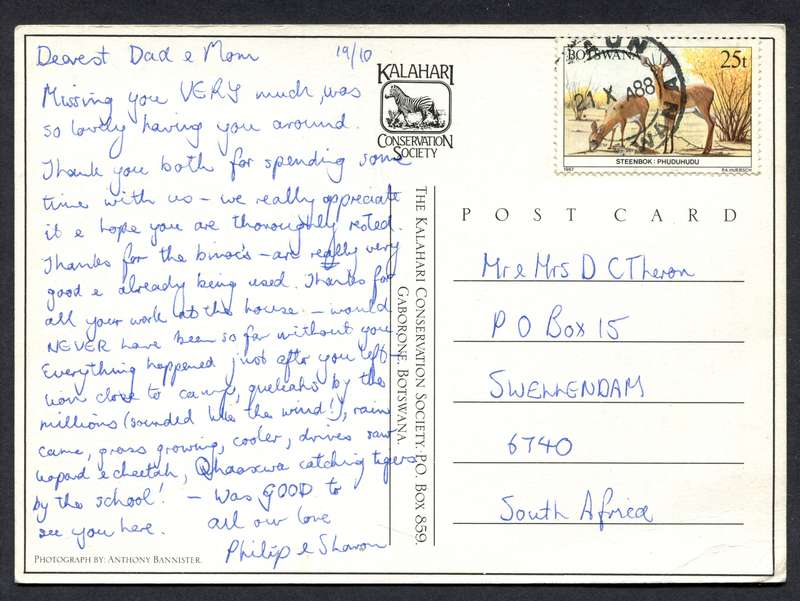 Dearest Dad e Mom 19/10
Missing you VERY much, was
so lovely having you around.
Thank you both for spending some
time with us – we really appreciate
it e hope you are thoroughly rested.
Thanks for the binoc's – are really very
good e already being used. Thanks for
all your work at the house – would
NEVER have been so far without you.
Everything happened just after you left
lion close to camp, queleahs by the
millions (sounded like the wind!), rain
came, grass growing, cooler, drives saw
leopard e cheetah, catching tigers
by the school! – Was GOOD to
see you here. all our love
Philip e Sharon
PHOTOGRAPH BY: ANTHONY BANNISTER.
KALAHARI
CONSERVATION
SOCIETY
THE KALAHARI CONSERVATION SOCIETY·P.O. BOX 859.
GABORONE, BOTSWANA.
MAUN
BOTSWANA
25t
X 1988
STEENBOK: PHUDUHUDU
1987
POST CARD
Mr e Mrs D C Theron
P O Box 15
SWELLENDAM
6740
South Africa